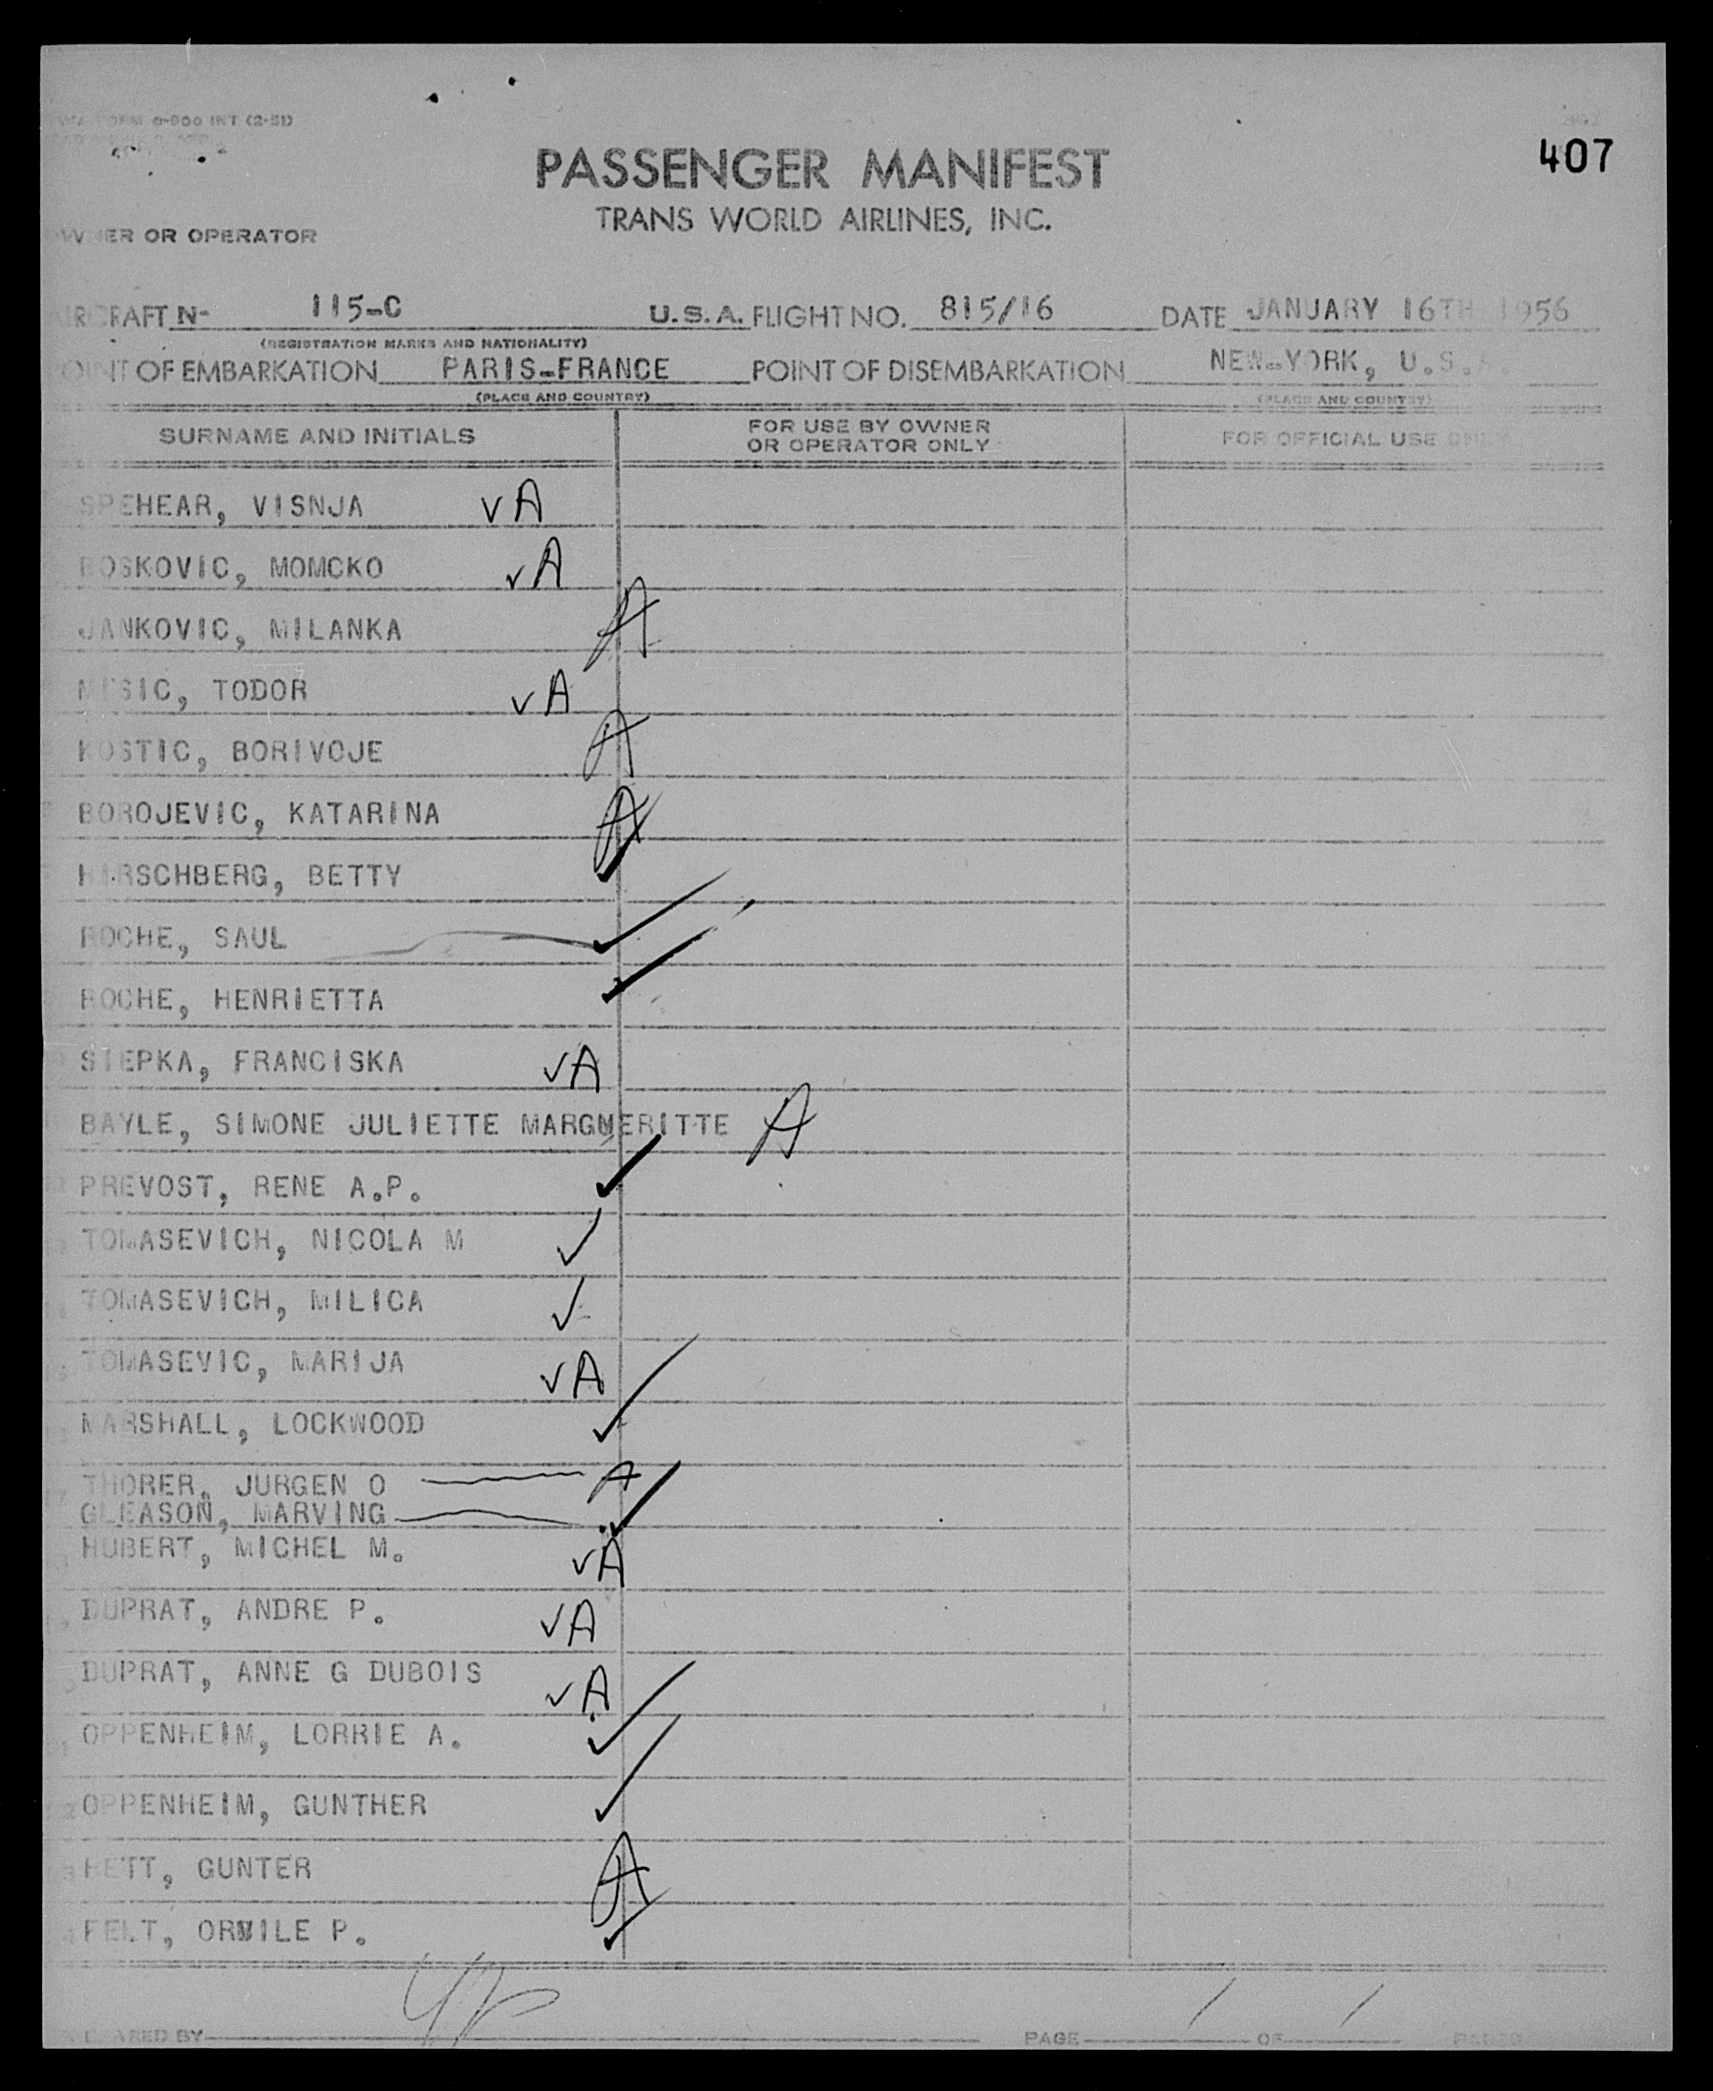 TWA FORM O-800 INT (2-51)
407
PASSENGER MANIFEST
TRANS WORLD AIRLINES, INC.
OWNER OR OPERATOR
AIRCRAFT N- 115-C U.S.A. FLIGHT NO. 815/16 DATE JANUARY 16TH 1956
(REGISTRATION MARKS AND NATIONALITY)
POINT OF EMBARKATION PARIS-FRANCE POINT OF DISEMBARKATION NEW-YORK, U.S.A.
(PLACE AND COUNTRY) (PLACE AND COUNTRY)
SURNAME AND INITIALS FOR USE BY OWNER OR OPERATOR ONLY FOR OFFICIAL USE ONLY
SPEHEAR, VISNJA ✓ A
BOSKOVIC, MOMCKO ✓ A
JANKOVIC, MILANKA A
MESIC, TODOR ✓ A
KOSTIC, BORIVOJE A
BOROJEVIC, KATARINA A
HIRSCHBERG, BETTY ✓
ROCHE, SAUL ✓
ROCHE, HENRIETTA ✓
STEPKA, FRANCISKA ✓ A
BAYLE, SIMONE JULIETTE MARGUERITTE A
PREVOST, RENE A.P. ✓
TOMASEVICH, NICOLA M ✓
TOMASEVICH, MILICA ✓
TOMASEVIC, MARIJA ✓ A
MARSHALL, LOCKWOOD ✓
THORER, JURGEN O A
GLEASON, MARVING ✓
HUBERT, MICHEL M. ✓ A
DUPRAT, ANDRE P. ✓ A
DUPRAT, ANNE G DUBOIS ✓ A
OPPENHEIM, LORRIE A. ✓
OPPENHEIM, GUNTHER ✓
HETT, GUNTER A
FELT, ORVILE P. ✓
PREPARED BY PAGE 1 OF 1 PAGES